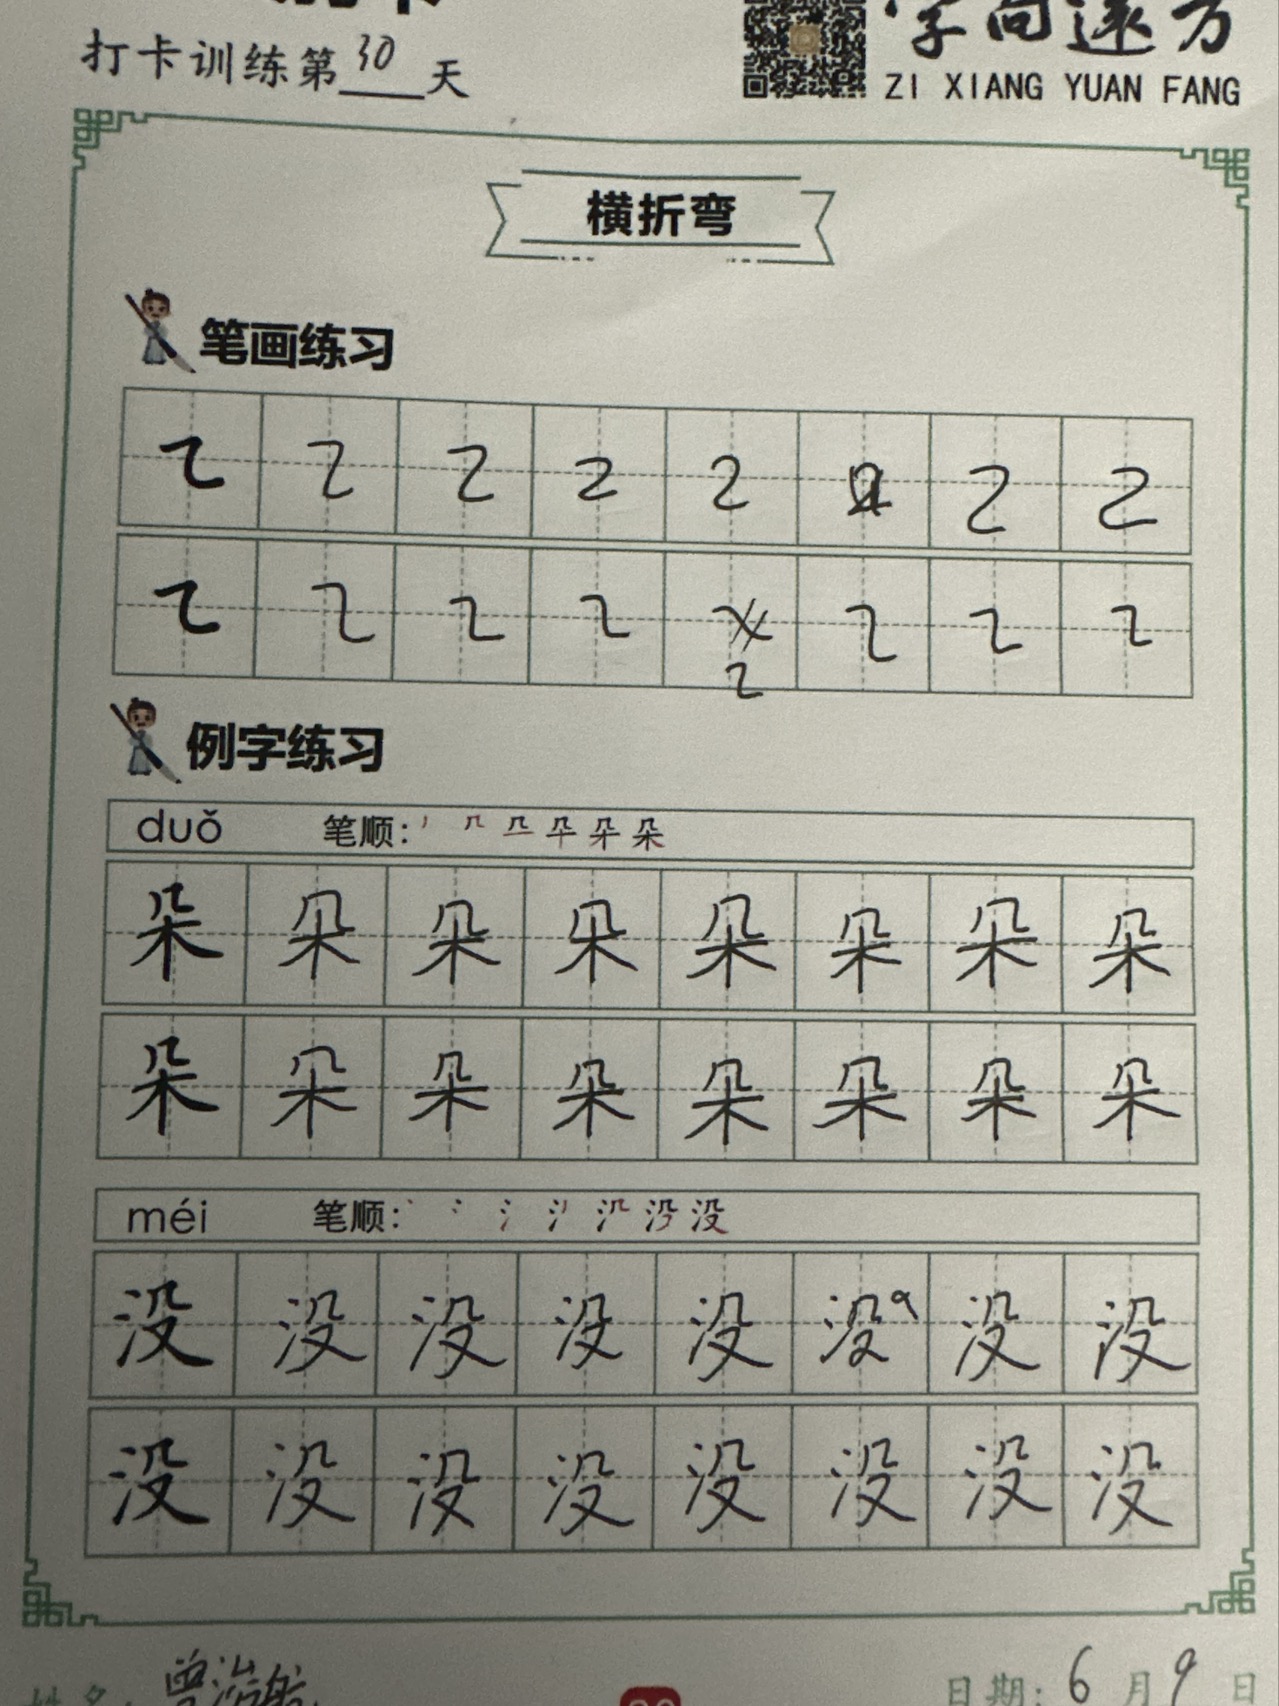 打卡训练第30天
字向远方
ZI XIANG YUAN FANG
横折弯
笔画练习
例字练习
duǒ 笔顺:
朵 朵 朵 朵 朵 朵 朵 朵
朵 朵 朵 朵 朵 朵 朵 朵
méi 笔顺:
没 没 没 没 没 没 没 没
没 没 没 没 没 没 没 没
姓名: 曾浩航 日期: 6月9日